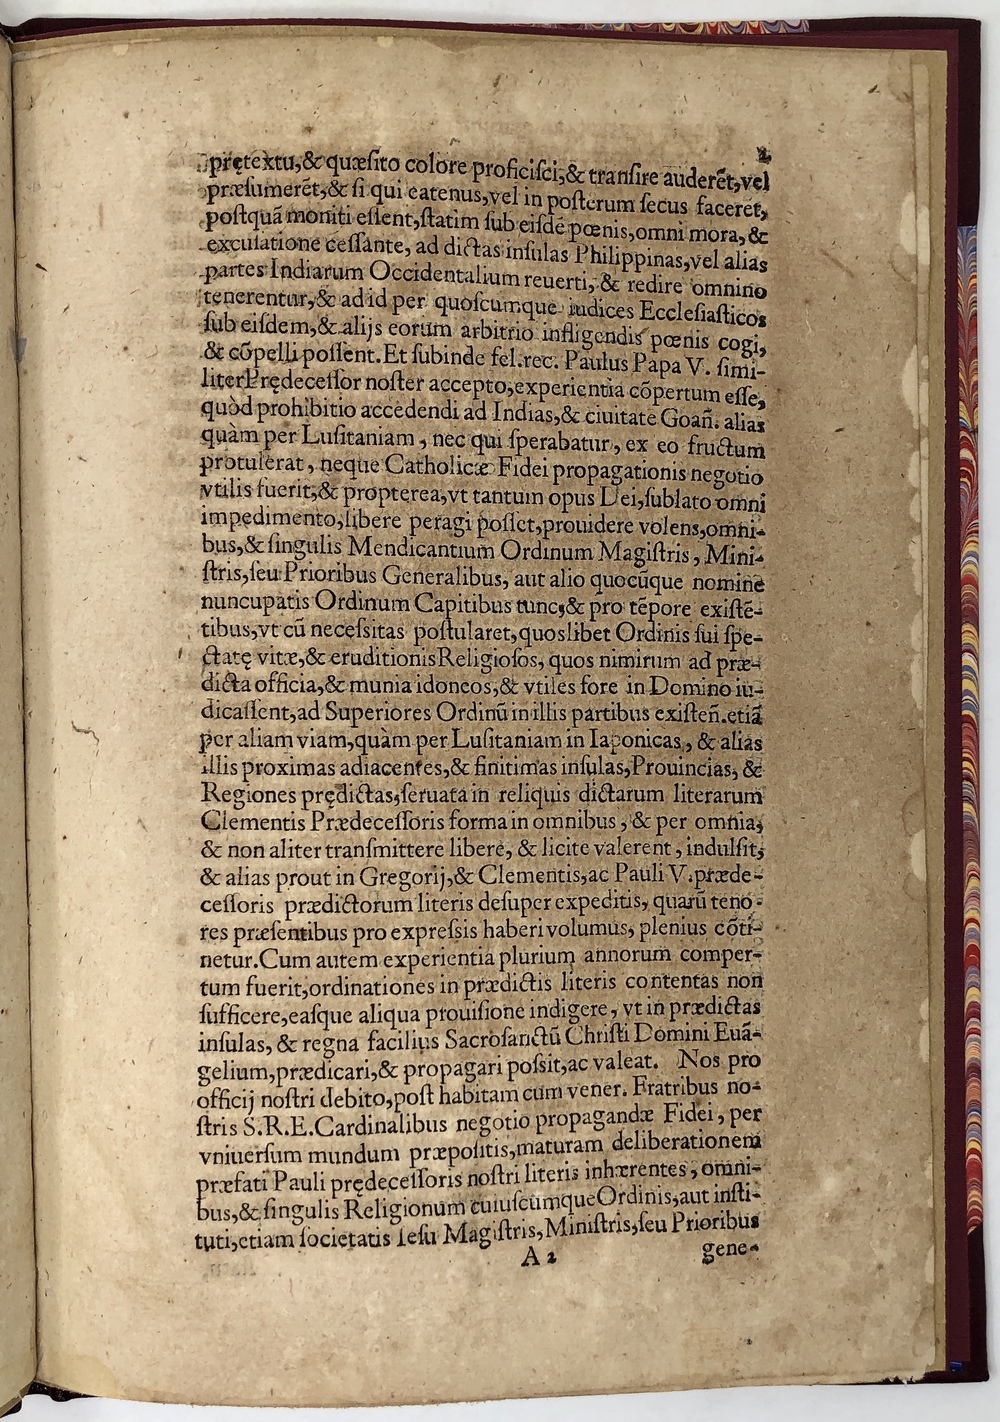 2
prętextu,& quæsito colore proficisci,& transire auderēt,vel
præsumerēt,& si qui eatenus,vel in posterum secus facerēt,
postquā moniti essent,statim sub eisdē pœnis,omni mora,&
excusatione cessante, ad dictas insulas Philippinas,vel alias
partes Indiarum Occidentalium reuerti, & redire omnino
tenerentur,& ad id per quoscumque iudices Ecclesiasticos
sub eisdem,& alijs eorum arbitrio infligendis pœnis cogi,
& cōpelli possent.Et subinde fel.rec. Paulus Papa V. simi-
liter Prędecessor noster accepto,experientia cōpertum esse,
quòd prohibitio accedendi ad Indias,& ciuitate Goañ. alias
quàm per Lusitaniam, nec qui sperabatur, ex eo fructum
protulerat, neque Catholicæ Fidei propagationis negotio
vtilis fuerit,& propterea,vt tantum opus Dei,sublato omni
impędimento,libere peragi posset,prouidere volens,omni-
bus,& singulis Mendicantium Ordinum Magistris, Mini-
stris,seu Prioribus Generalibus, aut alio quocūque nomine
nuncupatis Ordinum Capitibus tunc,& pro tēpore existē-
tibus,vt cū necessitas postularet,quoslibet Ordinis sui spe-
ctatę vitæ,& eruditionis Religiosos, quos nimirum ad præ-
dicta officia,& munia idoneos,& vtiles fore in Domino iu-
dicassent,ad Superiores Ordinū in illis partibus existeñ.etiā
per aliam viam,quàm per Lusitaniam in Iaponicas, & alias
illis proximas adiacentes,& finitimas insulas,Prouincias, &
Regiones prędictas,seruata in reliquis dictarum literarum
Clementis Prædecessoris forma in omnibus, & per omnia,
& non aliter transmittere libere, & licite valerent, indulsit,
& alias prout in Gregorij,& Clementis,ac Pauli V.præde-
cessoris prædictorum literis desuper expeditis, quarū teno-
res præsentibus pro expressis haberi volumus, plenius cōti-
netur.Cum autem experientia plurium annorum comper-
tum fuerit,ordinationes in prædictis literis contentas non
sufficere,easque aliqua prouisione indigere, vt in prædictas
insulas, & regna facilius Sacrosanctū Christi Domini Euā-
gelium,prædicari,& propagari possit,ac valeat. Nos pro
officij nostri debito,post habitam cum vener. Fratribus no-
stris S.R.E.Cardinalibus negotio propagandæ Fidei, per
vniuersum mundum præpositis,maturam deliberationem
præfati Pauli prędecessoris nostri literis inhærentes, omni-
bus,& singulis Religionum cuiuscumque Ordinis,aut insti-
tuti,etiam societatis Iesu Magistris,Ministris,seu Prioribus
A 2 gene-